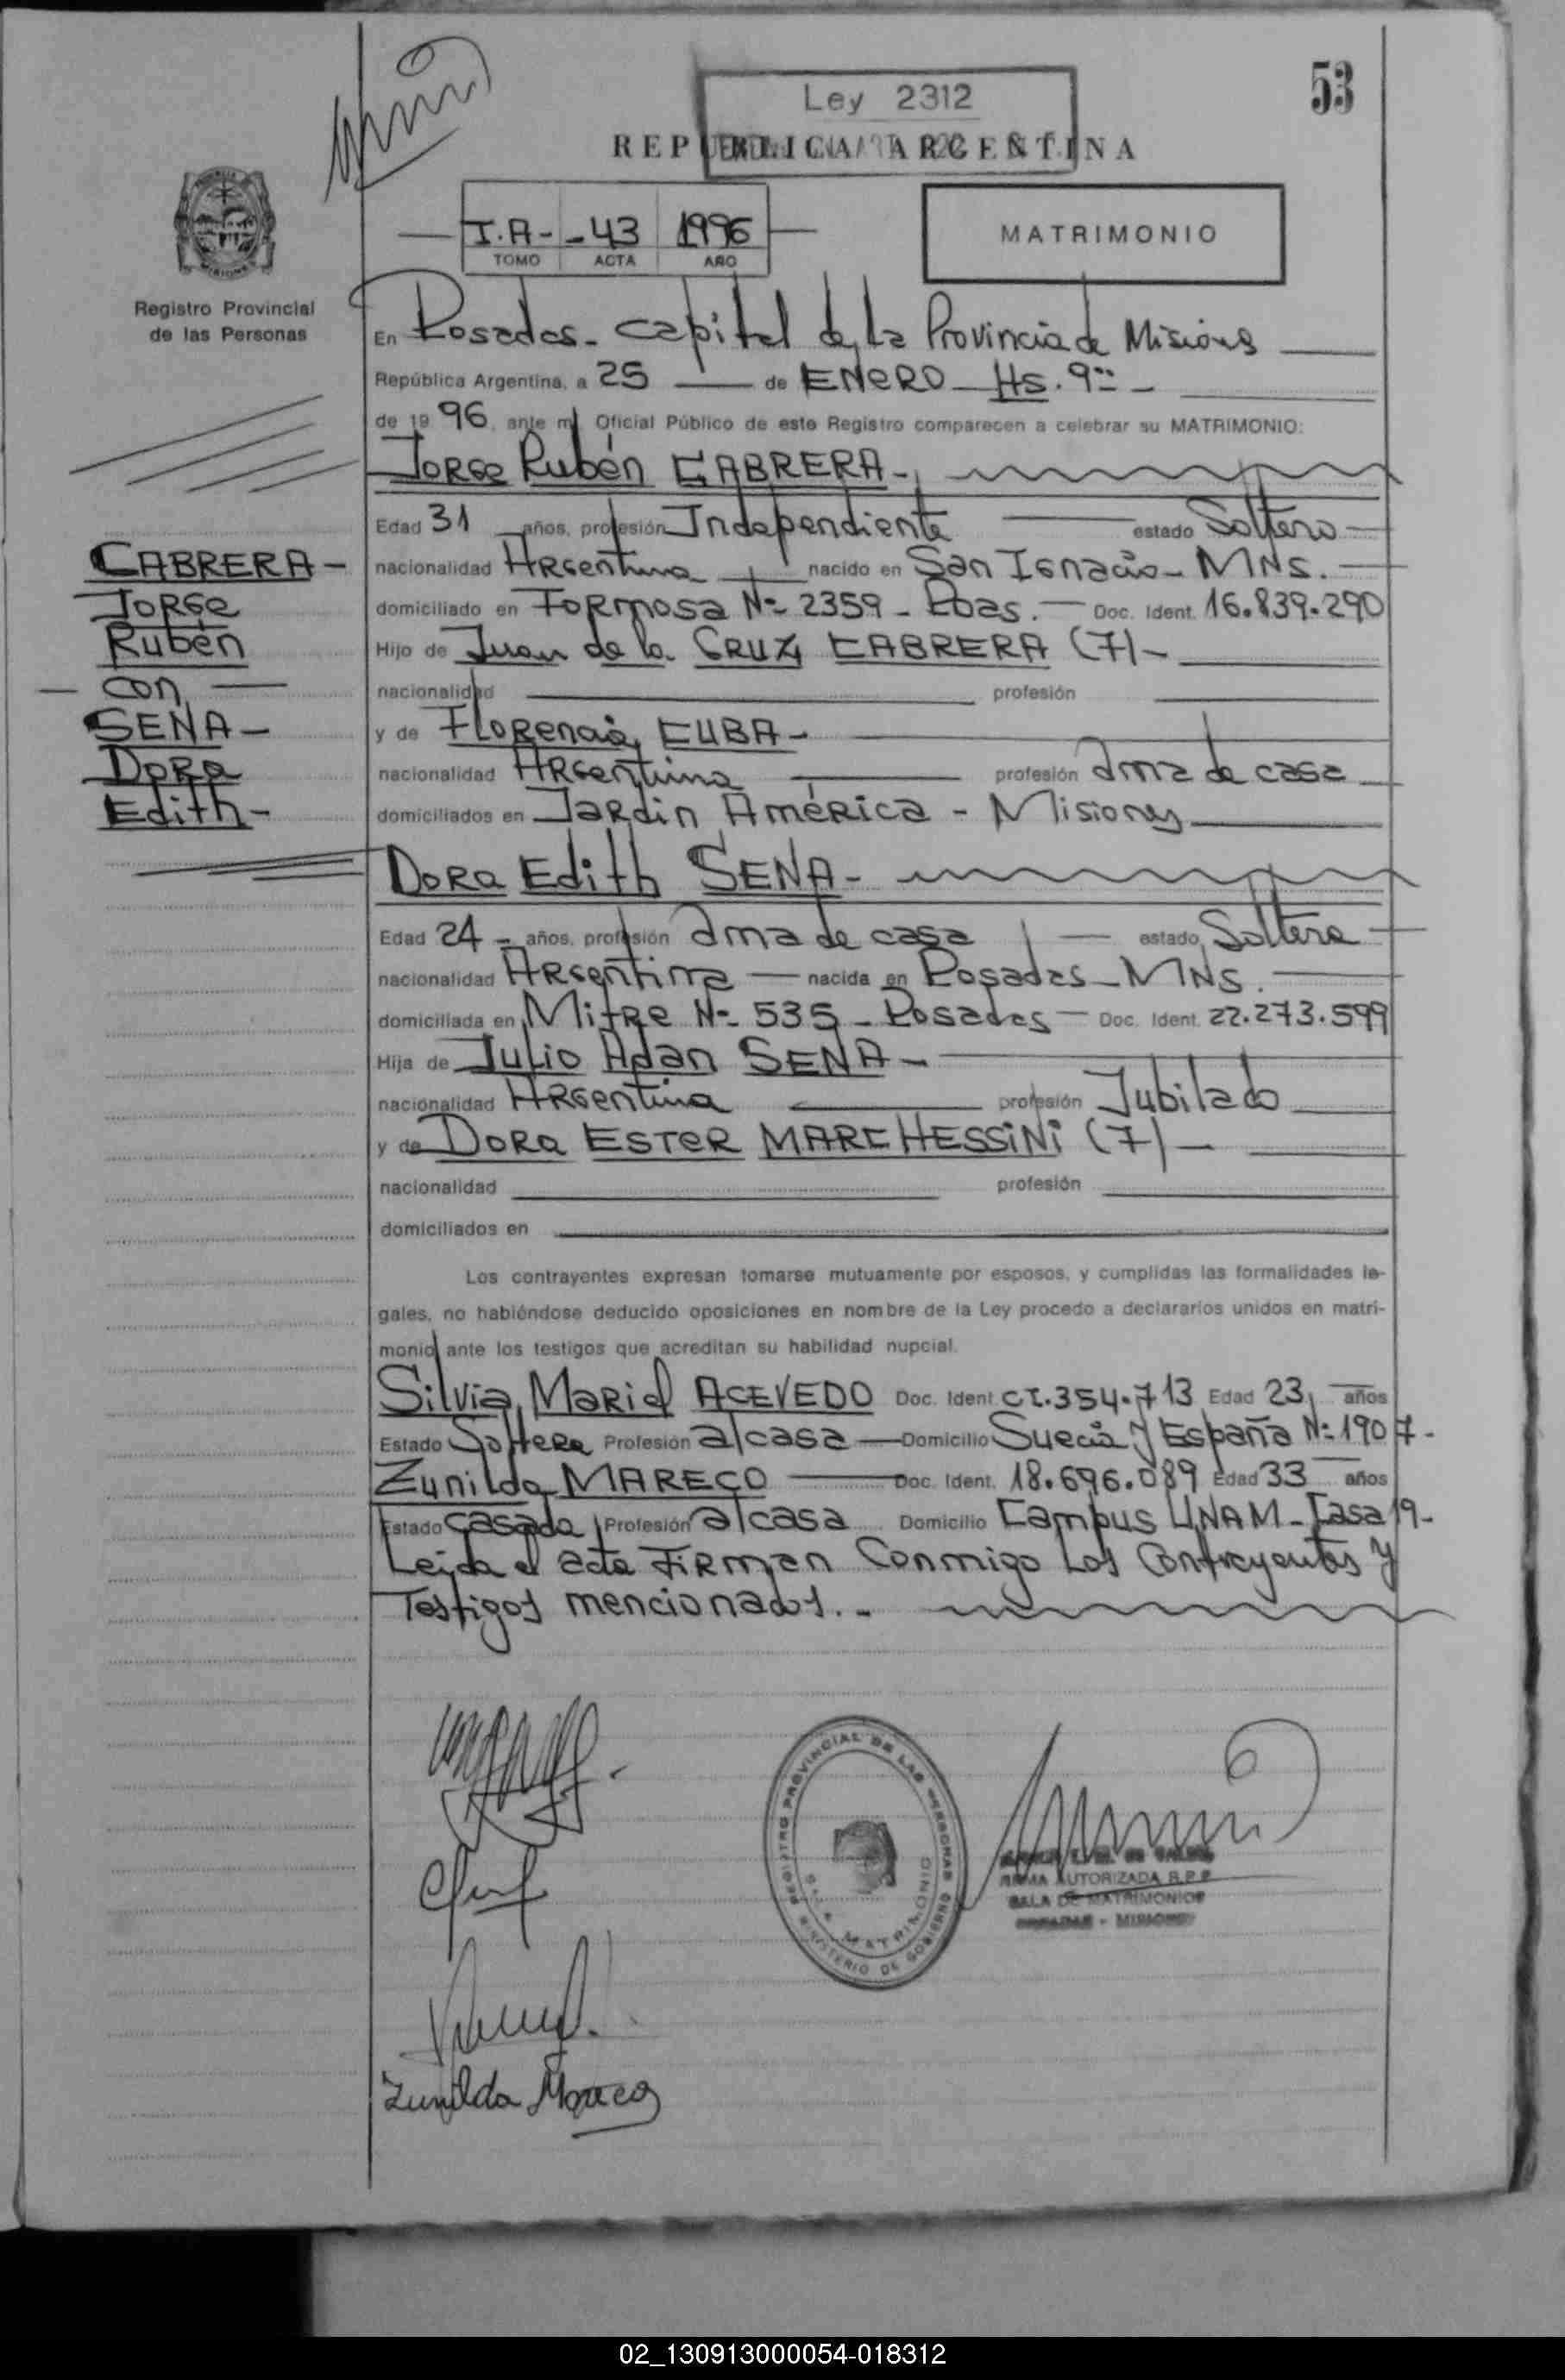 53
Ley 2312
REPUBLICA ARGENTINA
I.A- -43 1996
TOMO ACTA AÑO
MATRIMONIO
Registro Provincial
de las Personas
En Posadas - Capital de la Provincia de Misiones
República Argentina, a 25 de ENERO - Hs. 9
de 1996, ante mí, Oficial Público de este Registro comparecen a celebrar su MATRIMONIO:
Jorge Rubén CABRERA -
Edad 31 años, profesión Independiente estado Soltero
CABRERA -
Jorge
Rubén
- con
SENA -
Dora
Edith -
nacionalidad Argentina nacido en San Ignacio - MNS.
domiciliado en Formosa Nº 2359 - Pdas. - Doc. Ident. 16.839.290
Hijo de Juan de la CRUZ CABRERA (7) -
nacionalidad profesión
y de Florencia CUBA -
nacionalidad Argentina profesión Ama de casa
domiciliados en Jardin América - Misiones
Dora Edith SENA -
Edad 24 - años, profesión Ama de casa estado Soltera
nacionalidad Argentina nacida en Posadas - MNS.
domiciliada en Mitre Nº 535 - Posadas - Doc. Ident. 22.273.599
Hija de Julio Adan SENA -
nacionalidad Argentina profesión Jubilado
y de Dora Ester MARCHESSiNi (7) -
nacionalidad profesión
domiciliados en
Los contrayentes expresan tomarse mutuamente por esposos, y cumplidas las formalidades le-
gales, no habiéndose deducido oposiciones en nombre de la Ley procedo a declararlos unidos en matri-
monio ante los testigos que acreditan su habilidad nupcial.
Silvia Mariel ACEVEDO Doc. Ident. CI.354.713 Edad 23 años
Estado Soltera Profesión a/casa Domicilio Suecia y España Nº 1907 -
Zunilda MARECO Doc. Ident. 18.696.089 Edad 33 años
Estado casada Profesión a/casa Domicilio Campus UNAM - Casa 19 -
Leida el acta Firman Conmigo Los Contrayentes y
Testigos mencionados. -
REGISTRO PROVINCIAL DE LAS PERSONAS
SALA MATRIMONIO
MINISTERIO DE GOBIERNO
FIRMA AUTORIZADA R.P.P.
SALA DE MATRIMONIOS
POSADAS - MISIONES
Zunilda Mareco
02_130913000054-018312